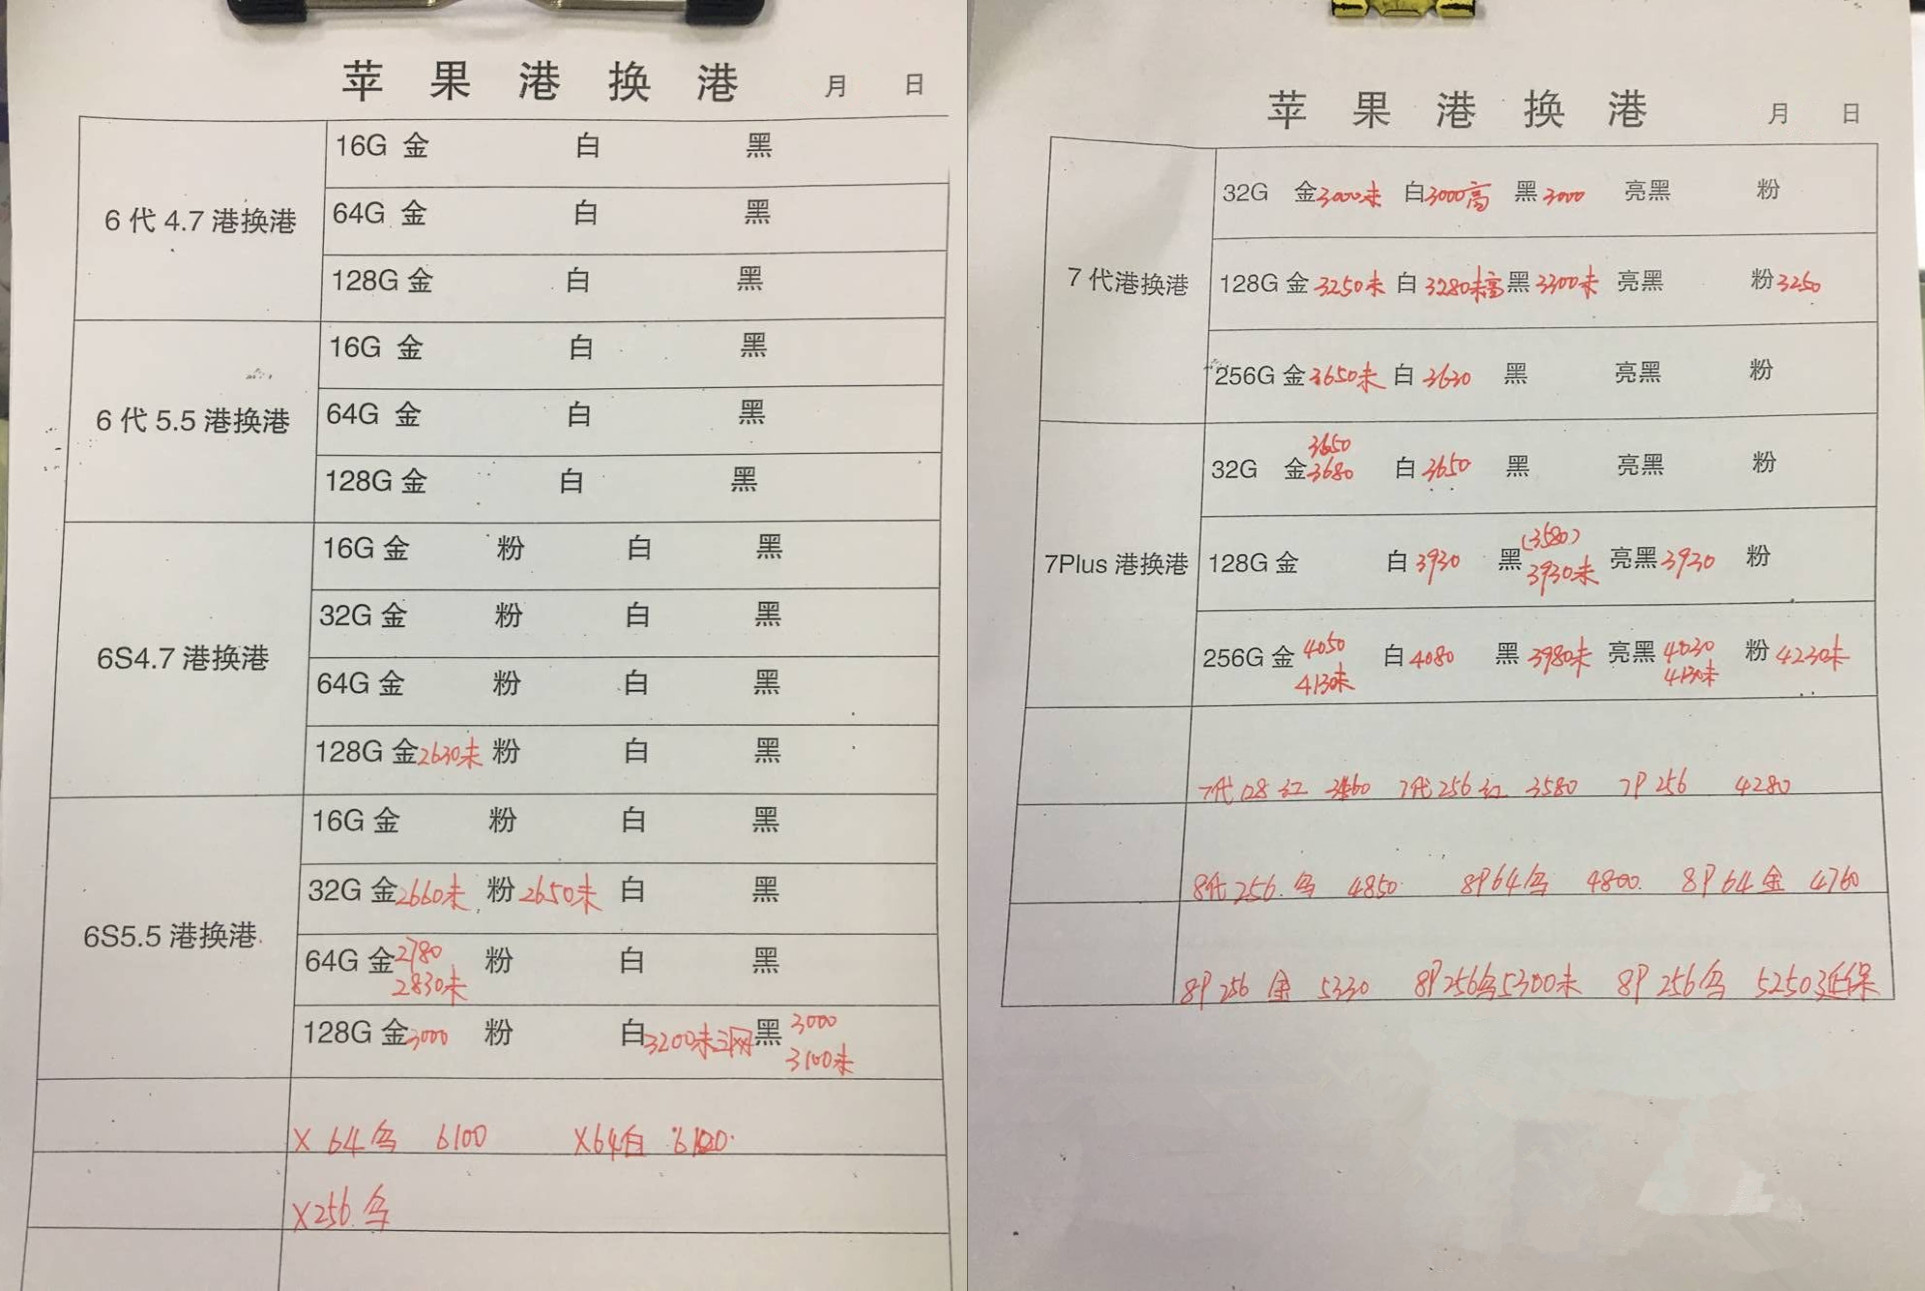 苹果港换港 月 日
6代4.7港换港
16G 金 白 黑
64G 金 白 黑
128G 金 白 黑
6代5.5港换港
16G 金 白 黑
64G 金 白 黑
128G 金 白 黑
6S4.7港换港
16G 金 粉 白 黑
32G 金 粉 白 黑
64G 金 粉 白 黑
128G 金2630未 粉 白 黑
6S5.5港换港
16G 金 粉 白 黑
32G 金2660未 粉2650未 白 黑
64G 金2780 粉 白 黑
2830未
128G 金3000 粉 白3200未三网 黑3000
3100未
X 64 6100 X64白
X256
苹果港换港 月 日
7代港换港
32G 金3000未 白3000高 黑3000 亮黑 粉
128G 金3250未 白3280未高 黑3300未 亮黑 粉3250
256G 金3650未 白3630 黑 亮黑 粉
7Plus港换港
3650
32G 金3680 白3650 黑 亮黑 粉
(3580)
128G 金 白3930 黑3930未 亮黑3930 粉
256G 金4050 白4080 黑3980未 亮黑4030 粉4230未
4130未 4130未
7代128红 7代256红 3580 7P 256 4280
8代256 4850 8P64 4800 8P64金 4760
8P 256 金 5330 8P 256 5300未 8P 256 5250延保